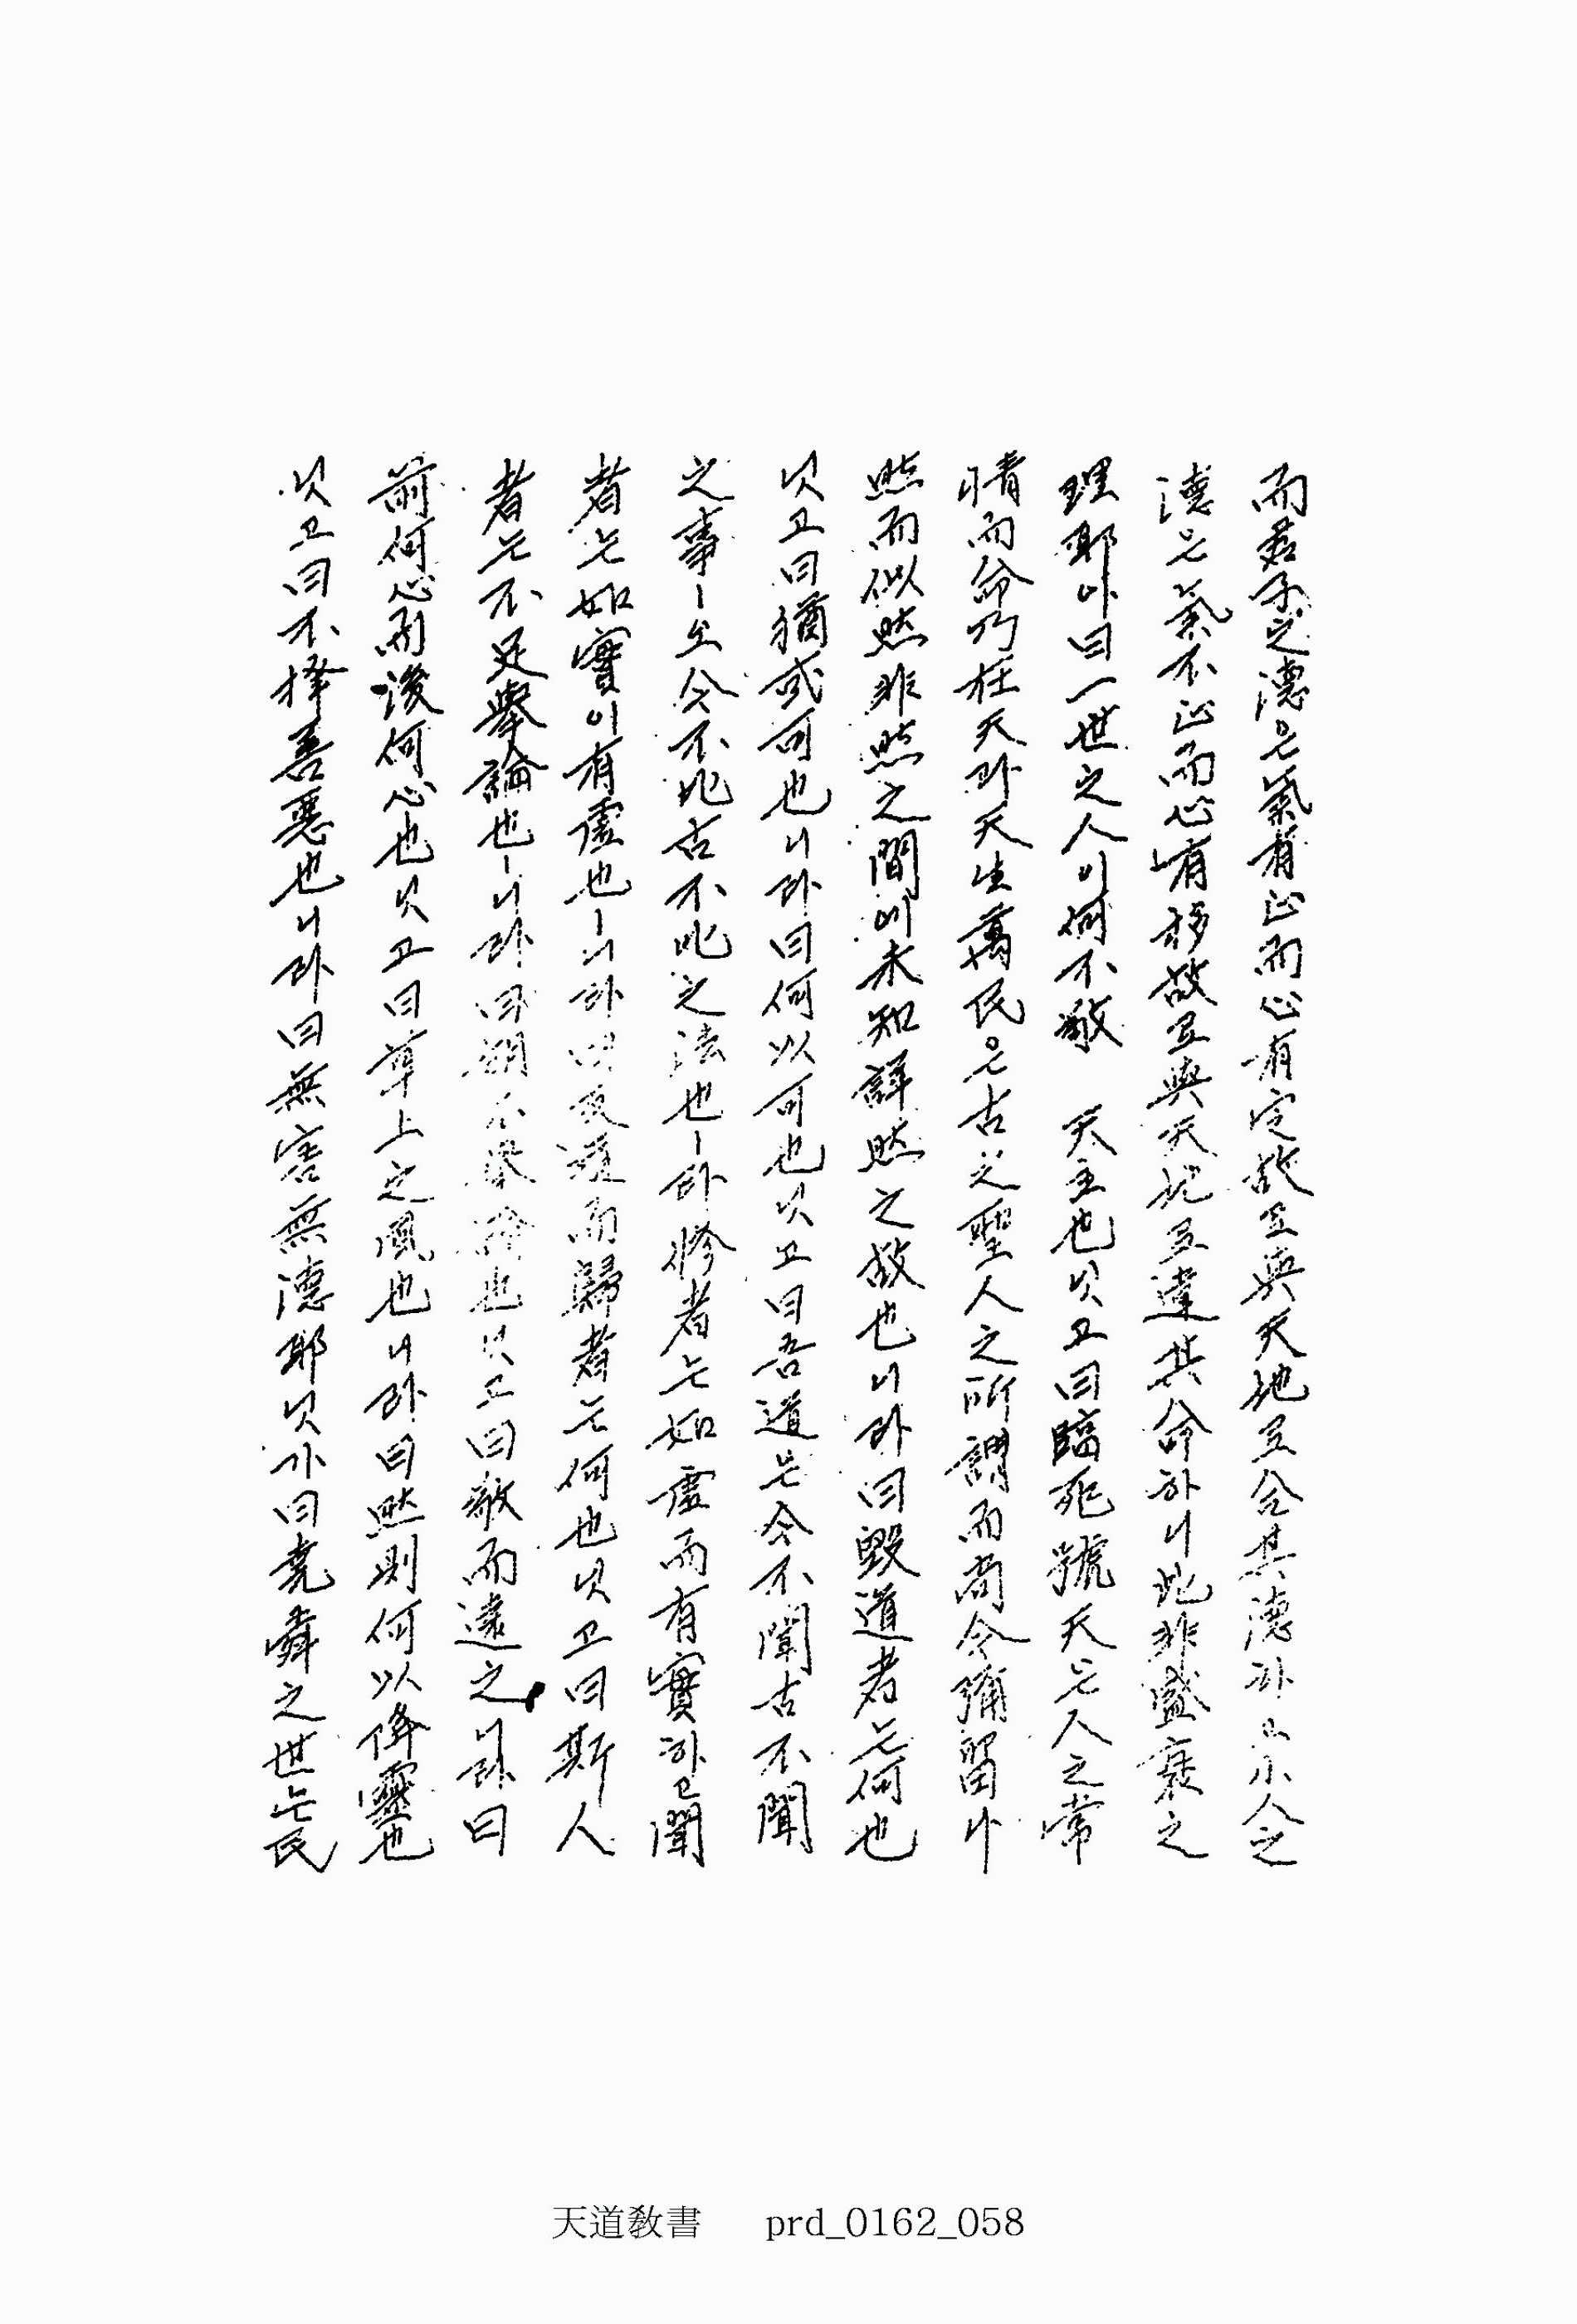 而君子之德은氣有正而心有定故로與天地로合其德하고小人之
德은氣不正而心有移故로與天地로違其命하니此非盛衰之
理耶아曰一世之人이何不敬 天主也잇고曰臨死號天은人之常
情而命乃在天라天生萬民은古之聖人之所謂而尙今彌留나
然而似然非然之間에未知詳然之故也니라曰毁道者는何也
잇고曰猶或可也니라曰何以可也잇고曰吾道는今不聞古不聞
之事ㅣ오今不比古不比之法也ㅣ라修者는如虛而有實하고聞
者는如實이有虛也ㅣ니라曰反道而歸者는何也잇고曰斯人
者는不足擧論也ㅣ니라曰胡不擧論也잇고曰敬而遠之니라曰
前何心而後何心也잇고曰草上之風也니라曰然則何以降靈也
잇고曰不擇善惡也니라曰無害無德耶잇가曰堯舜之世는民
天道敎書 prd_0162_058